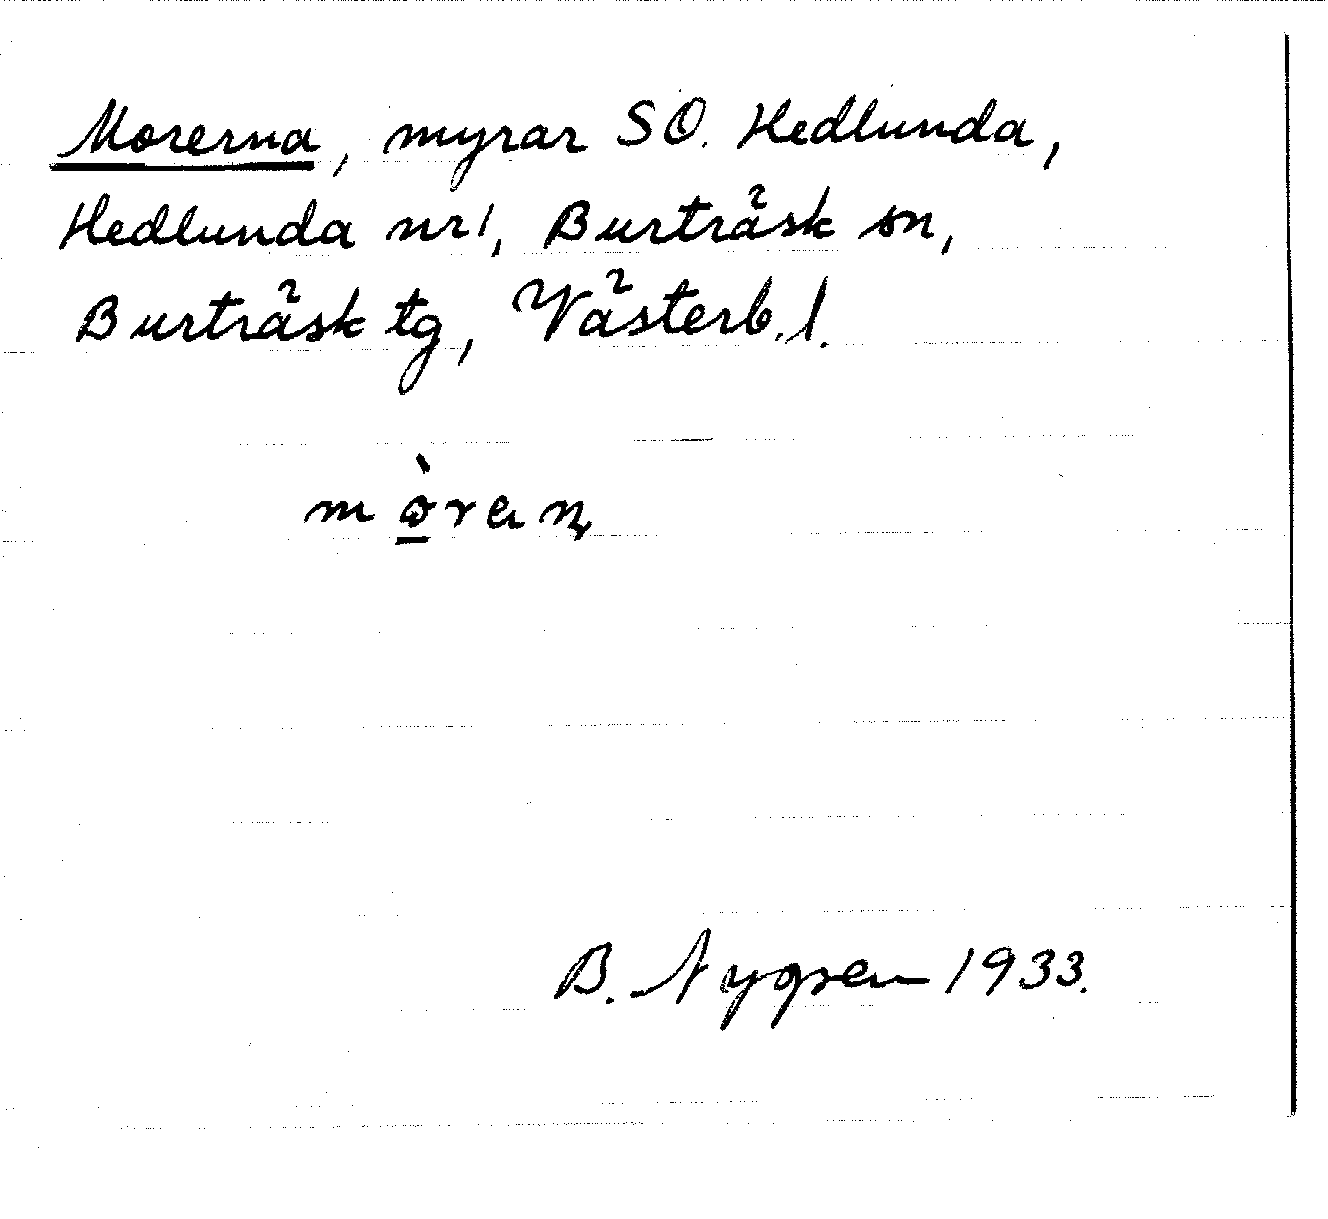 Morerna, myrar SO. Hedlunda,
Hedlunda nr 1, Burträsk sn,
Burträsk tg, Västerb. l.
B. Nygren 1933.